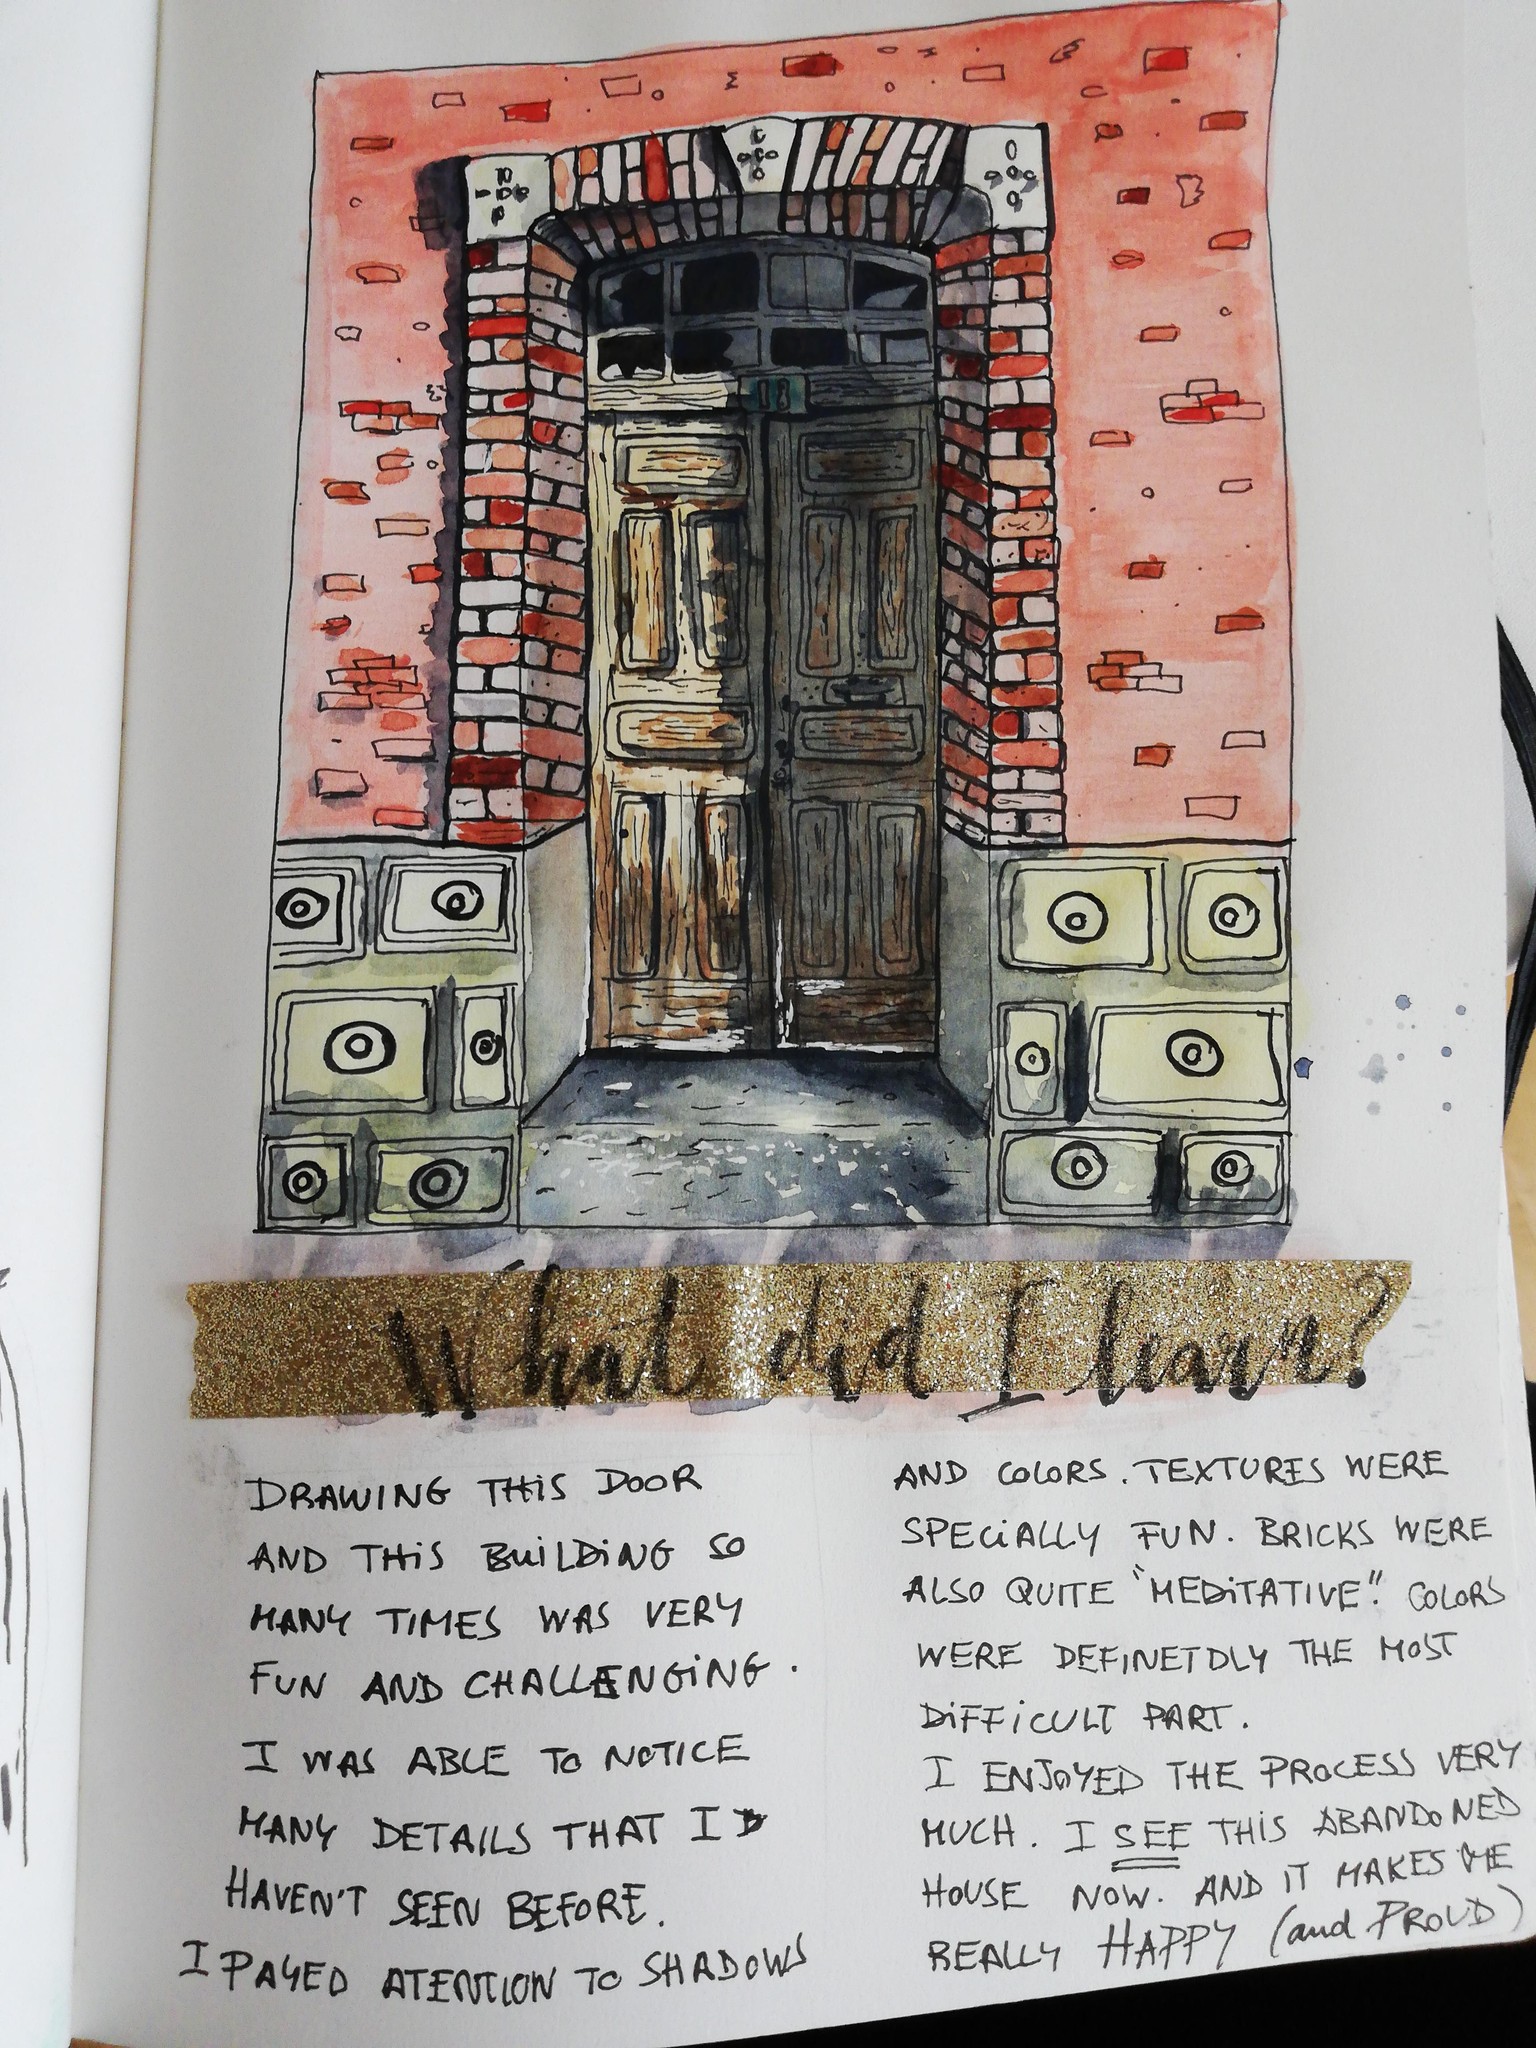 18
What did I learn?
DRAWING THIS DOOR
AND THIS BUILDING SO
MANY TIMES WAS VERY
FUN AND CHALLENGING.
I WAS ABLE TO NOTICE
MANY DETAILS THAT I
HAVEN'T SEEN BEFORE.
I PAYED ATENTION TO SHADOWS
AND COLORS. TEXTURES WERE
SPECIALLY FUN. BRICKS WERE
ALSO QUITE "MEDITATIVE". COLORS
WERE DEFINETDLY THE MOST
DIFFICULT PART.
I ENJOYED THE PROCESS VERY
MUCH. I SEE THIS ABANDONED
HOUSE NOW. AND IT MAKES ME
REALLY HAPPY (and PROUD)